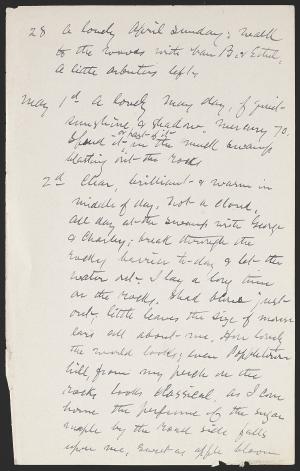 28 A lovely April Sunday; walk
to the woods with Van B. & Ethel,
A little arbutus left,
May 1st A lovely May day, of quiet
sunshine & shadow. Mercury 70.
Spend it or part of it in the muck swamp
blasting out the rocks
2d Clear, brilliant & warm in
middle of day, not a cloud,
all day at the swamp with George
& Charley; break through the
rocky barrier to-day & let the
water out. I lay a long time
on the rocks, shad blow just
out, little leaves the size of mouse
ears all about me, How lovely
the world looks; even Popletown
hill from my perch on the
rocks looks classical, as I come
home the perfume of the sugar
maple by the road side falls
upon me, sweet as apple bloom